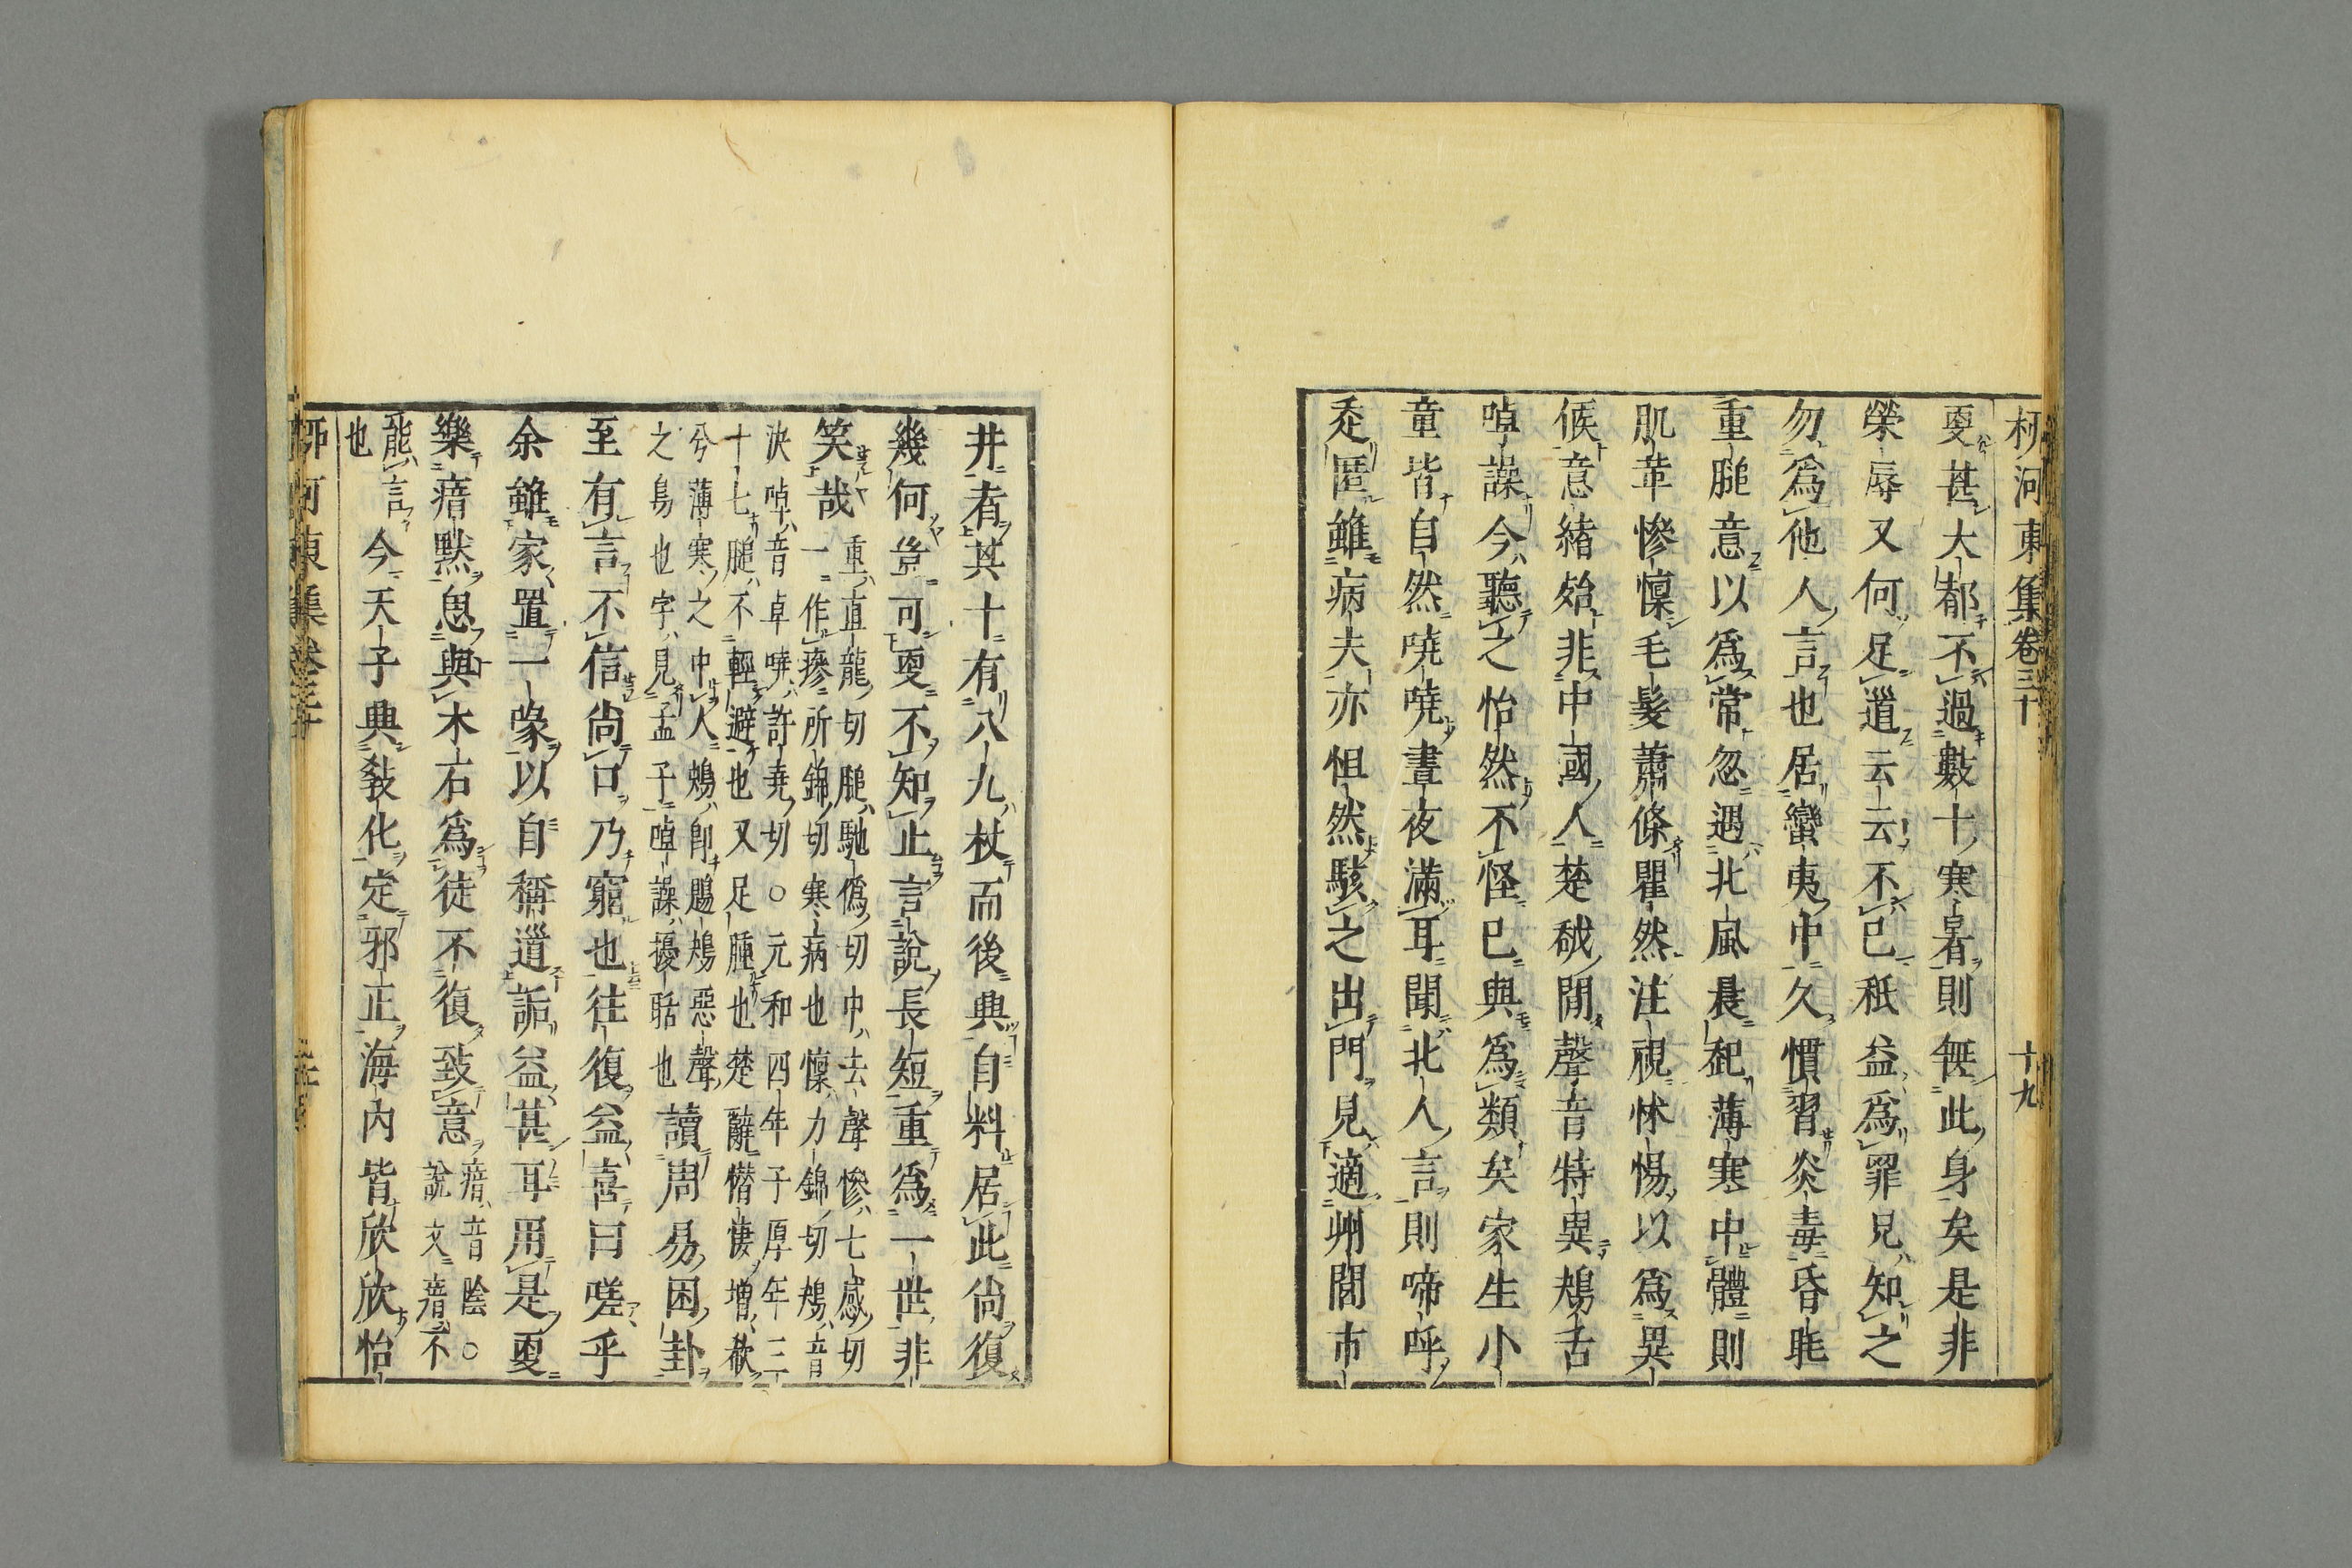 柳河東集卷三十　十九
更甚大都不過數十寒暑則無此身矣是非
榮辱又何足道云云不已秖益爲罪兄知之
勿爲他人言也居蠻夷中久慣習炎毒昏眊
重膇意以爲常忽遇北風晨起薄寒中體則
肌革慘懍毛髮蕭條瞿然注視怵惕以爲異
候意緒殆非中國人楚越閒聲音特異鴂舌
啅譟今聽之怡然不怪已與爲類矣家生小
童皆自然嘵嘵晝夜滿耳聞北人言則啼呼
走匿雖病夫亦怛然駭之出門見適州閭市
井者其十有八九杖而後興自料居此尙復
幾何豈可更不知止言說長短重爲一世非
笑哉
重直龍切膇馳僞切中去聲慘七感切
一作瘮所錦切寒病也懍力錦切鴂音
決啅音卓嘵許堯切○元和四年子厚年三
十七膇不輕避也又足腫也楚辭憯悽增欷
兮薄寒之中人鴂卽鵙鴂惡聲
之鳥也字見孟子啅譟擾聒也
讀周易困卦
至有言不信尙口乃窮也往復益喜曰嗟乎
余雖家置一喙以自稱道詬益甚耳用是更
樂瘖默思與木石爲徒不復致意
瘖音陰○
說文瘖不
能言
也
今天子興敎化定邪正海內皆欣欣怡
柳河東集卷三十